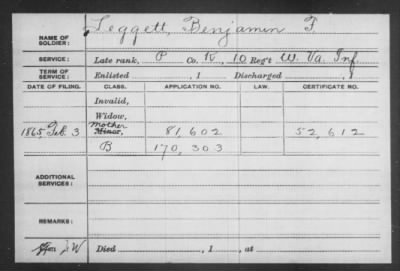 NAME OF SOLDIER: Leggett, Benjamin F.
SERVICE: Late rank, P Co. K, 10 Reg't W. Va. Inf
TERM OF SERVICE: Enlisted , 1 Discharged , 1
DATE OF FILING. CLASS. APPLICATION NO. LAW. CERTIFICATE NO.
Invalid,
Widow,
Mother
1865 Feb. 3 Minor, 81,602 52,612
B 170,303
ADDITIONAL SERVICES:
REMARKS:
Died , 1 , at